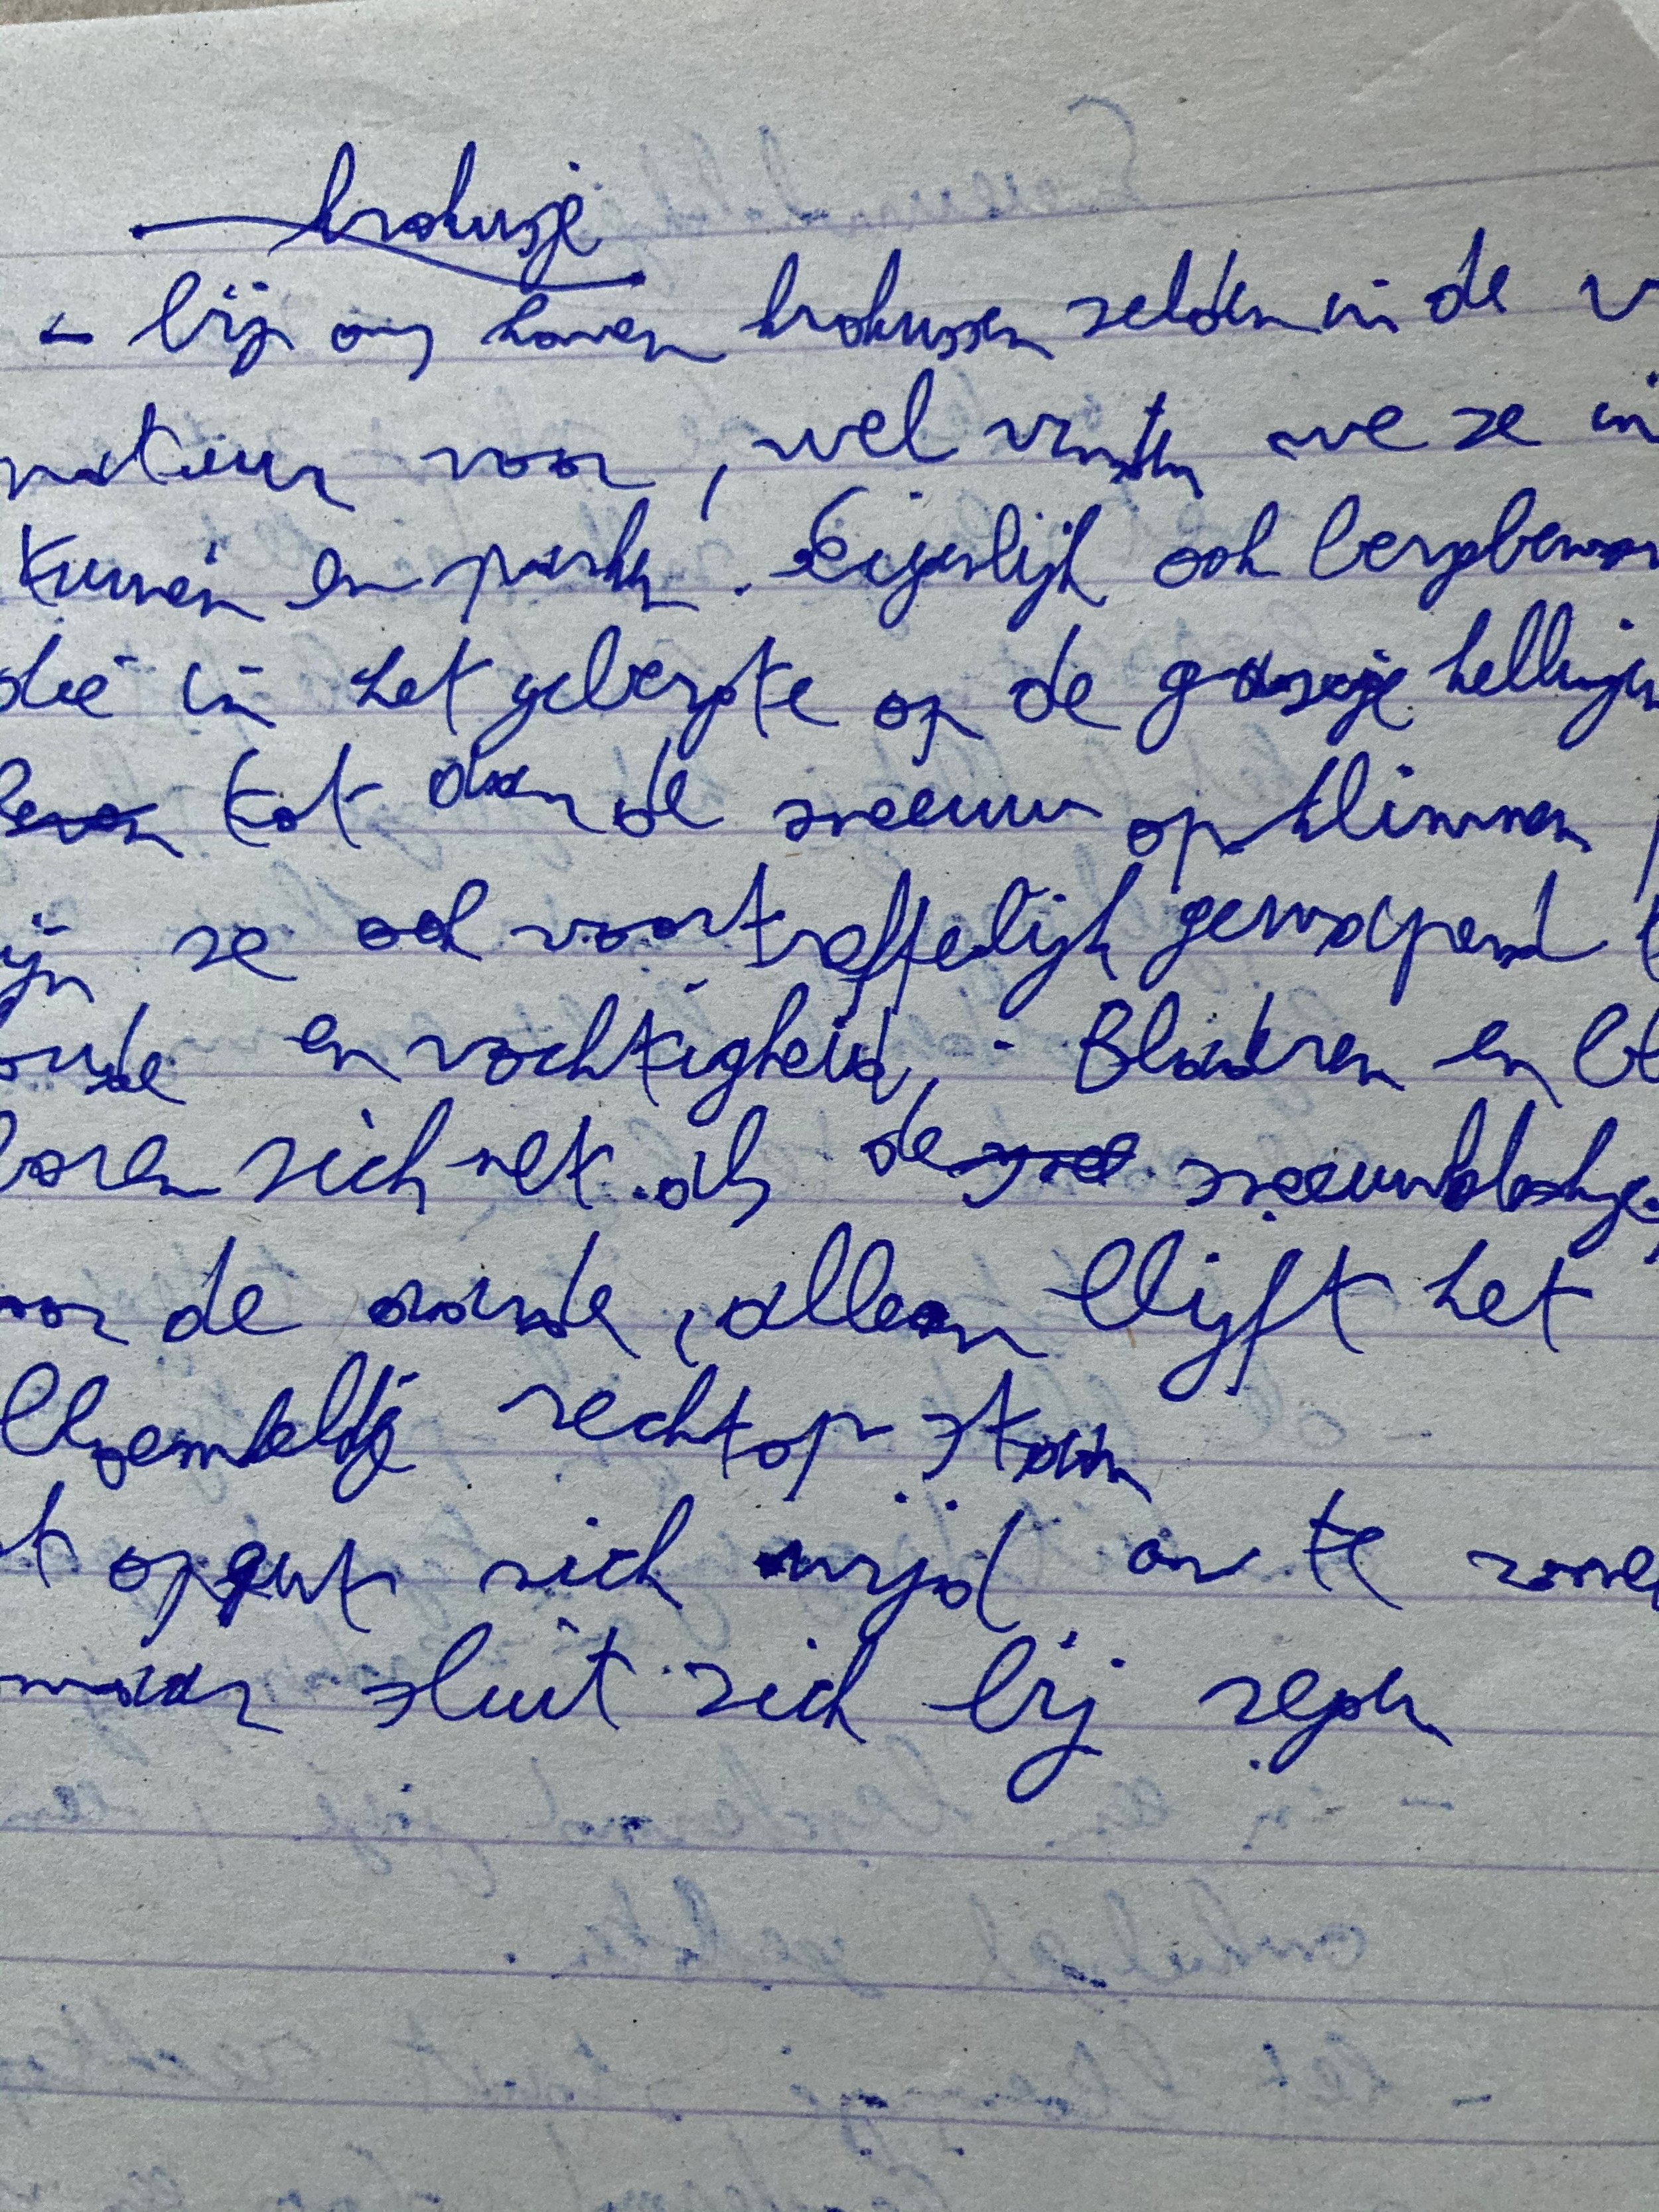 krokusje
- bij ons komen krokussen zelden in de v
natuur voor, wel vinden we ze in
tuinen en parken. Eigenlijk ook bergbewon
die in het gebergte op de grazige hellingen
leven tot aan de sneeuw opklimmen
ijn ze ook voortreffelijk gewapend t
oude en vochtigheid. - Bladeren en bl
boren zich net als de sneeuwklokje
oor de aarde, alleen blijft het
bloemkelkje rechtop staan
t opent zich wijd aan te zonne
maar sluit zich bij regen